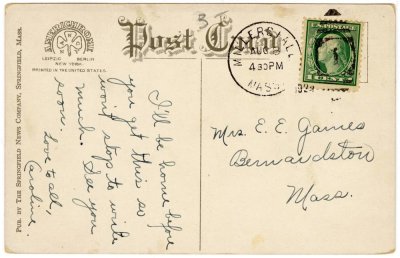 Post Card
LEIPZIG BERLIN
NEW YORK
PRINTED IN THE UNITED STATES.
PUB. BY THE SPRINGFIELD NEWS COMPANY, SPRINGFIELD, MASS.
I'll be home before
you get this so
won't stop to write
much. See you
soon.
Love to all,
Caroline.
4 30PM
MASS.
Mrs. E. E. Games
Bernardston
Mass.